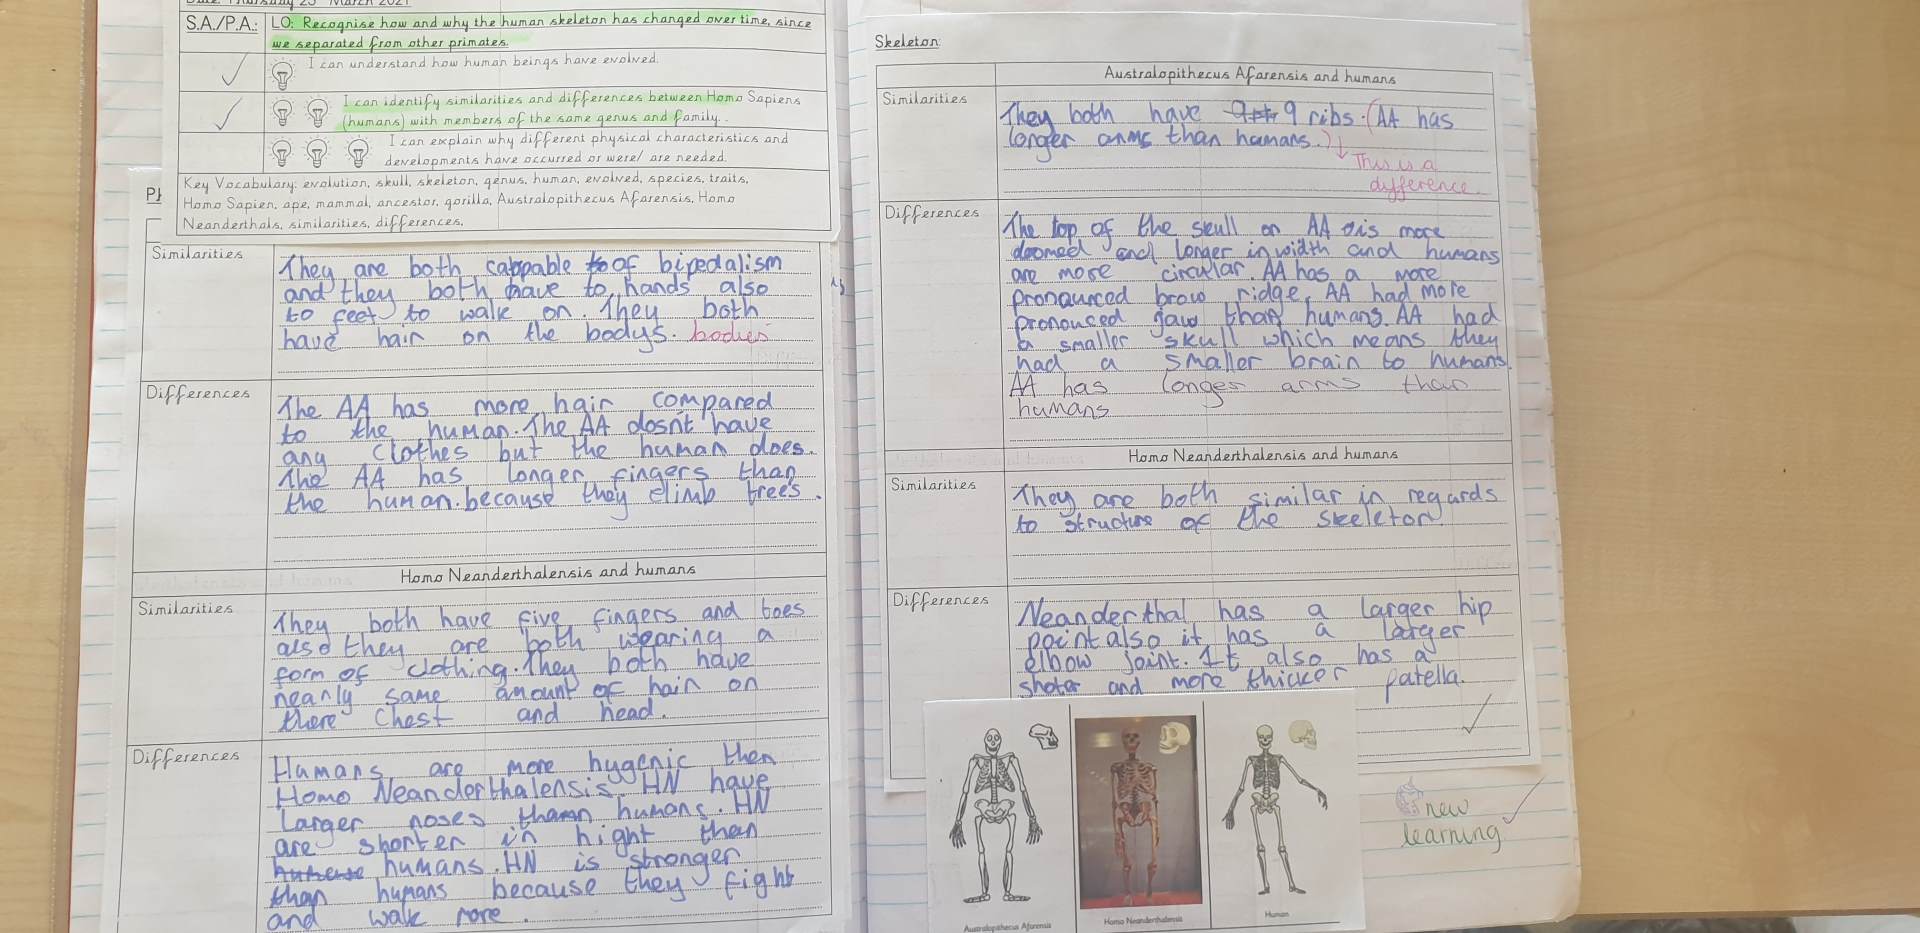 Date: Thursday 25th March 2021
S.A./P.A.:
LO: Recognise how and why the human skeleton has changed over time, since
we separated from other primates.
I can understand how human beings have evolved.
I can identify similarities and differences between Homo Sapiens
(humans) with members of the same genus and family.
I can explain why different physical characteristics and
developments have occurred or were/ are needed.
Key Vocabulary: evolution, skull, skeleton, genus, human, evolved, species, traits,
Homo Sapien, ape, mammal, ancestor, gorilla, Australopithecus Afarensis, Homo
Neanderthals, similarities, differences.
Similarities
They are both cabpable to of bipedalism
and they both have to hands also
to feet to walk on. They both
have hair on the bodys. bodies
Differences
The AA has more hair compared
to the human. The AA dosn't have
any clothes but the human does.
The AA has longer fingers than
the human. because they climb trees.
Homo Neanderthalensis and humans
Similarities
They both have five fingers and toes
also they are both wearing a
form of clothing. They both have
nearly same amount of hair on
there chest and head.
Differences
Humans are more hygenic then
Homo Neanderthalensis. HN have
Larger noses than humans. HN
are shorter in hight then
humans. HN is stronger
than humans because they fight
and walk more.
Skeleton:
Australopithecus Afarensis and humans
Similarities
They both have 9 ribs. (AA has
longer arms than humans.)
This is a
difference.
Differences
The top of the skull on AA is more
doomed and longer in width and humans
are more circular. AA has a more
pronounced brow ridge, AA had more
pronouced jaw than humans. AA had
a smaller skull which means they
had a smaller brain to humans.
AA has longer arms than
humans
Homo Neanderthalensis and humans
Similarities
They are both similar in regards
to structure of the skeleton.
Differences
Neanderthal has a larger hip
point also it has a larger
elbow joint. It also has a
shoter and more thicker patella.
Australopithecus Afarensis
Homo Neanderthalensis
Human
new
learning